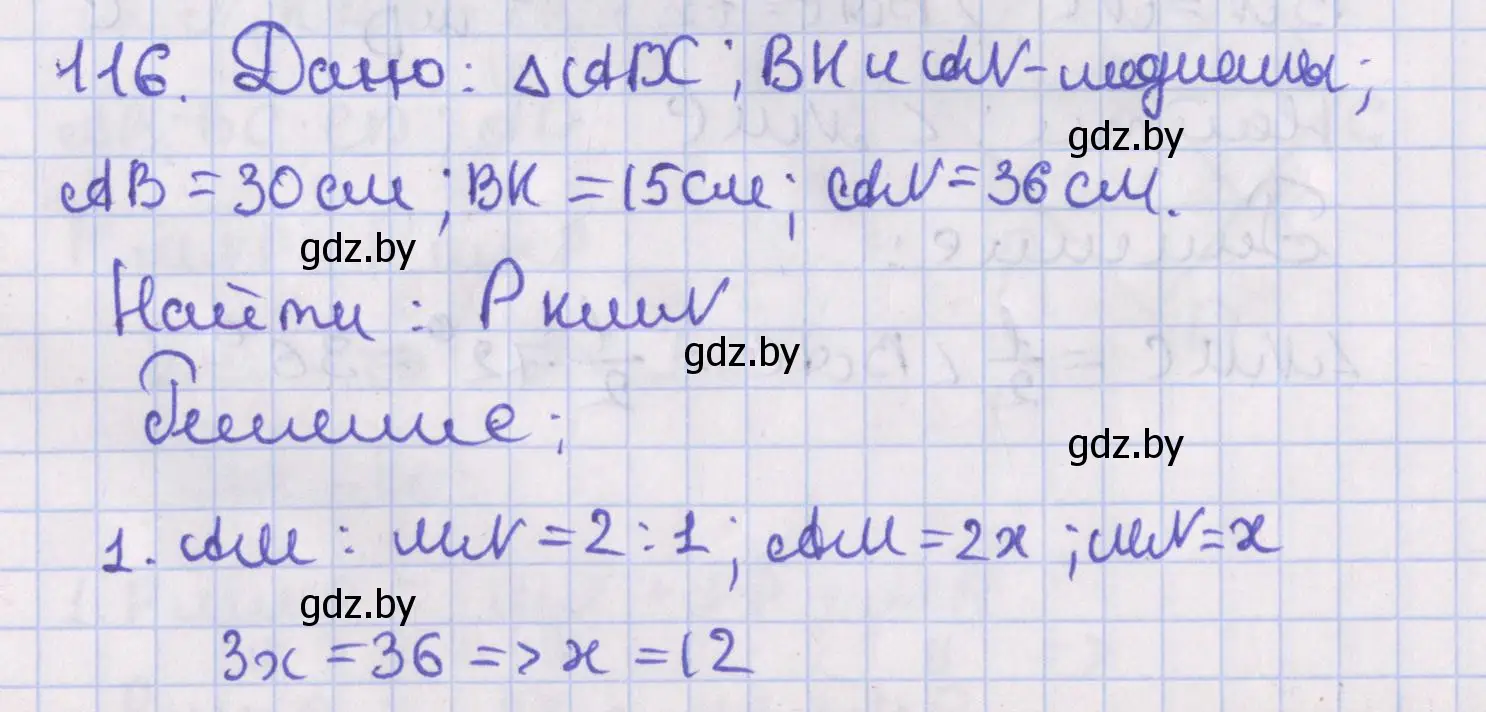 116. Дано: △ABC; BK и AN - медианы;
gdz.by
AB = 30 см; BK = 15 см; AN = 36 см.
gdz.by
Найти: P KMN
gdz.by
Решение:
gdz.by
1. AM : MN = 2 : 1; AM = 2x; MN = x
gdz.by
3x = 36 => x = 12